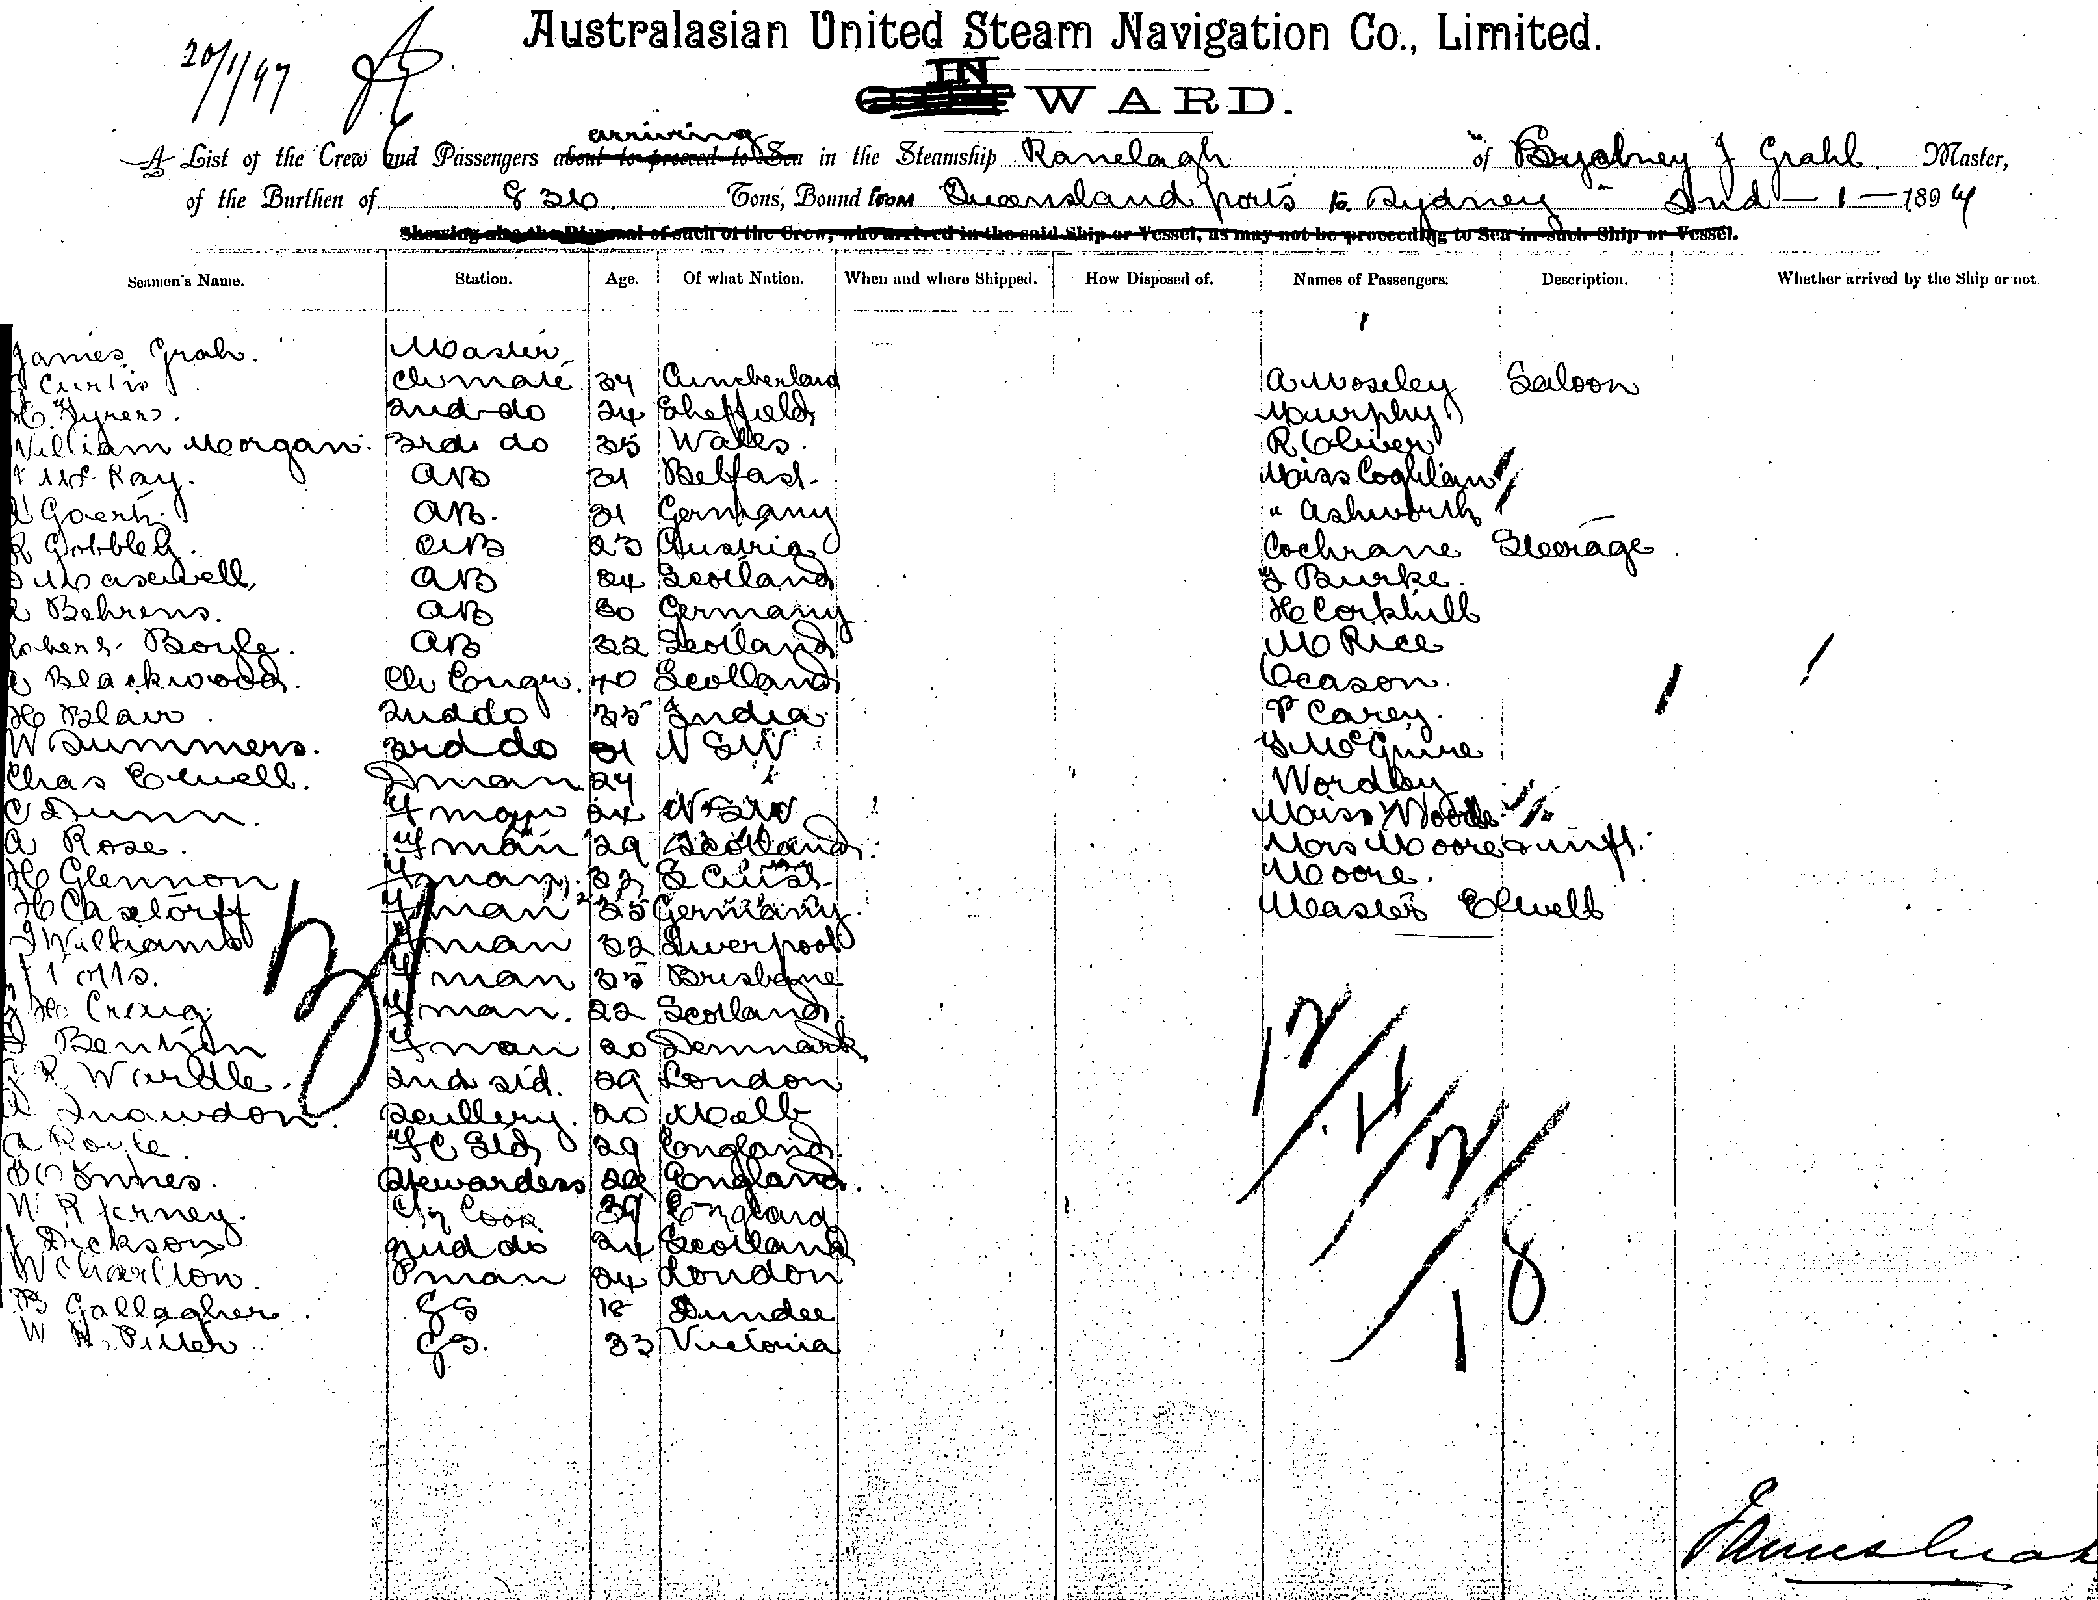 Australasian United Steam Navigation Co., Limited.
20/1/97
IN
WARD.
arriving
A List of the Crew and Passengers about to proceed to Sea in the Steamship Ranelagh of Sydney J Grahl Master,
of the Burthen of 836 Tons, Bound from Queensland ports to Sydney 2nd - 1 - 1897
Showing also the Disposal of such of the Crew, who arrived in the said Ship or Vessel, as may not be proceeding to Sea in such Ship or Vessel.
Seamen's Name. Station. Age. Of what Nation. When and where Shipped. How Disposed of. Names of Passengers. Description. Whether arrived by the Ship or not
James Grah. Master
Curtis Ch mate 34 Cumberland A Moseley Saloon
H. Fyrens. 2nd do 24 Sheffield Murphy
William Morgan. 3rd do 35 Wales. R Oliver
McKay. AB 31 Belfast. Miss Coghlan
Goertz. AB. 31 Germany " Ashworth
R Gobbley. AB 23 Austria Cochrane Steerage
Maxwell AB 24 Scotland J Burke.
Behrens. AB 30 Germany H Corkhill
Robert Boyle. AB 32 Scotland M Rice
Blackwood. Ch Engr. 40 Scotland Eason.
H Blair. 2nd do 35 India P Carey.
W Summers. 3rd do 31 NSW J McGuire
Chas Elwell. Dman 24 Wordley
C Dunn. F man 24 NSW Miss Woods
A Rose. F man 29 Scotland Mrs Moore & inft.
H Glennon F man 32 S Aust Moore.
H Castorff F man 35 Germany. Master Elwell
J Williams F man 32 Liverpool
Potts. F man 35 Brisbane
H. Craig F man. 22 Scotland
Bentzen F man 20 Denmark
R Wardle. 2nd std. 29 London
A Snawdon. Scullery. 20 Melb
A Royle. F C Std 29 England
Innes. Stewardess England.
W R Kerney. Ch Cook 39 England
J Dickson 2nd do 24 Scotland
W Charlton. P man 24 London
B Gallagher. GS 18 Dundee
W H. Piller. GS. 33 Victoria
31
12
4
2
18
James Grah